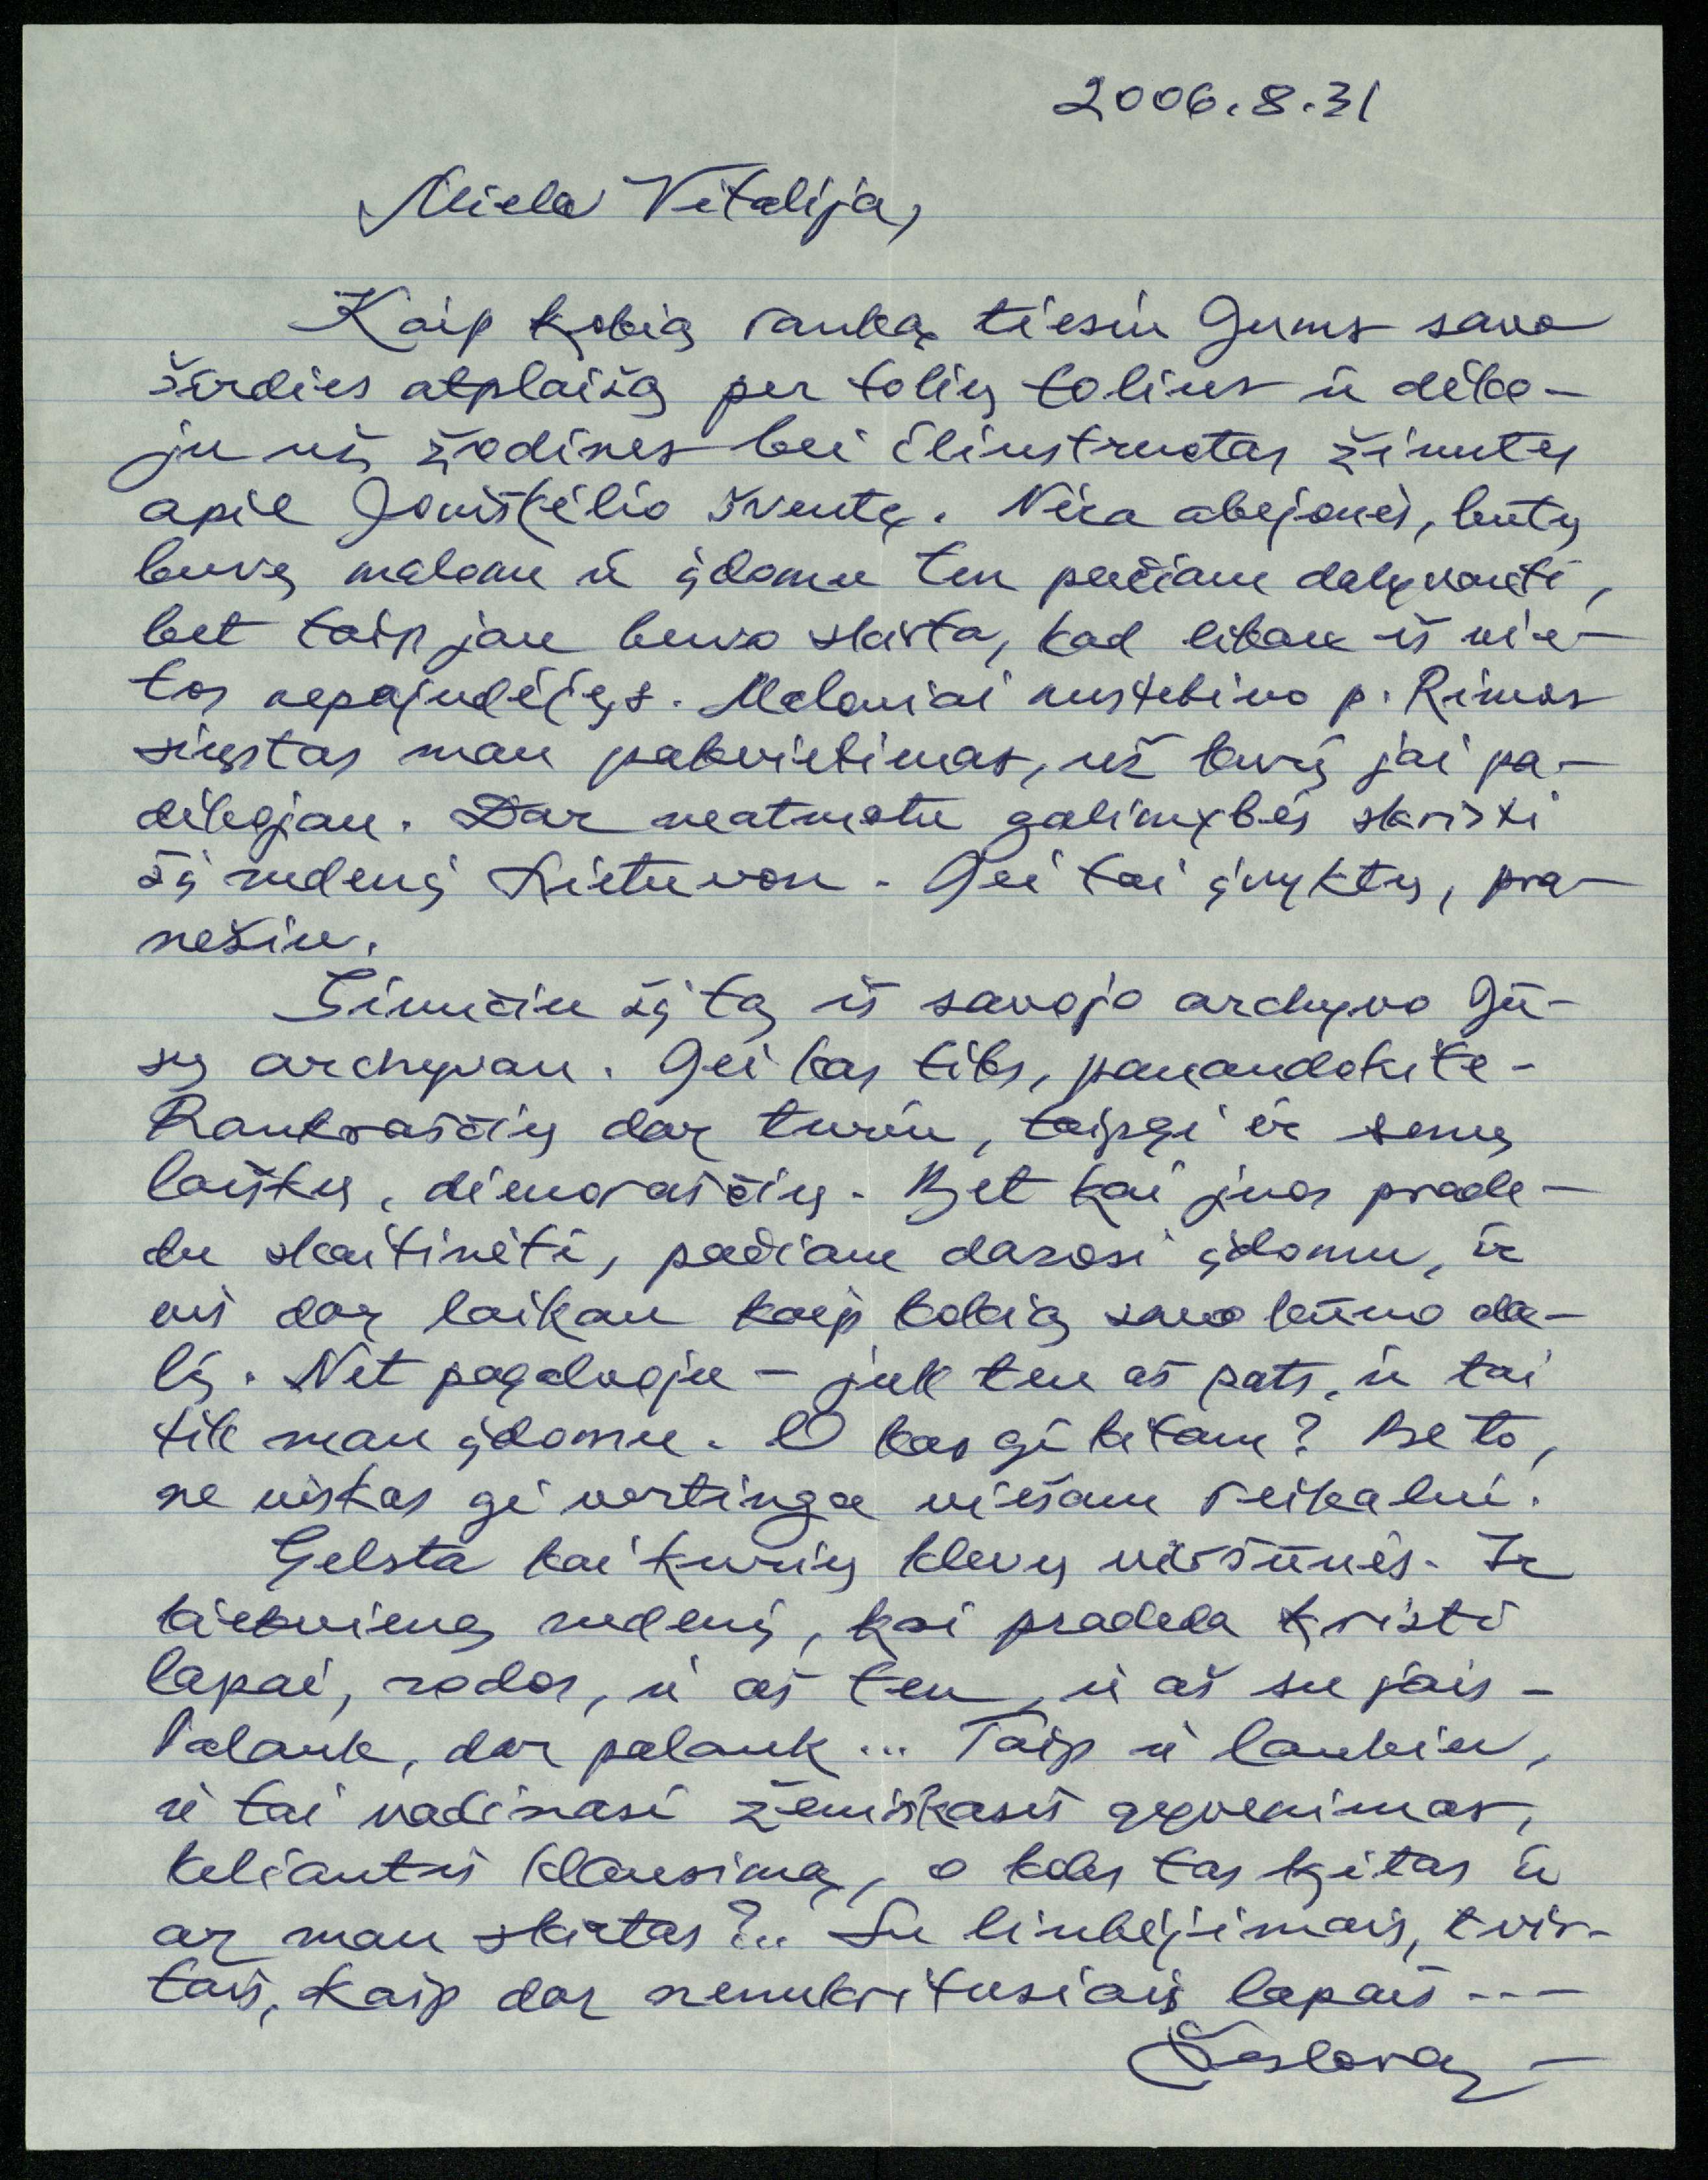 2006.8.31
Miela Vitalija,
Kaip kokią ranką tiesiu Jums savo
širdies atplaišą per tolių tolius ir dėko-
ju už žodines bei iliustruotas žinutes
apie Joniškėlio šventę. Nėra abejonės, būtų
buvę malonu ir įdomu ten pačiam dalyvauti,
bet taip jau buvo skirta, kad likau iš vie-
tos nepajudėjęs. Maloniai nustebino p. Rimos
siųstas man pakvietimas, už kurį jai pa-
dėkojau. Dar neatmetu galimybės skristi
šį rudenį Lietuvon. Jei tai įvyktų, pra-
nešiu.
Siunčiu šį tą iš savojo archyvo Jū-
sų archyvan. Jei kas tiks, panaudokite.
Rankraščių dar turiu, taipgi ir senų
laiškų, dienoraščių. Bet kai juos prade-
du skaitinėti, pačiam darosi įdomu, ir
vis dar laikau kaip kokią savo kūno da-
lį. Net pagalvoju – juk ten aš pats, ir tai
tik man įdomu. O kas gi kitam? Be to,
ne viskas gi vertinga viešam reikalui.
Gelsta kai kurių klevų viršūnės. Ir
kiekvieną rudenį, kai pradeda kristi
lapai, rodos, ir aš ten, ir aš su jais –
Palauk, dar palauk ... Taip ir laukiu,
ir tai vadinasi žemiškasis gyvenimas,
keliantis klausimą, o koks tas kitas ir
ar man skirtas?.. Su linkėjimais, tvir-
tais, kaip dar nenukritusiais lapais ---